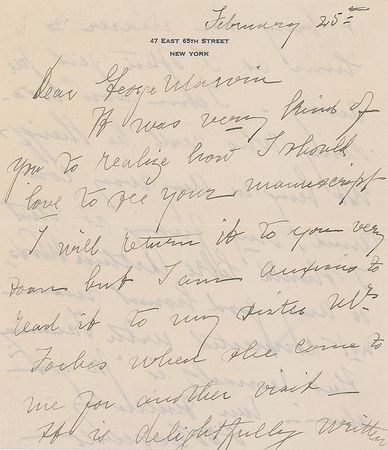 February 25=
47 EAST 65TH STREET
NEW YORK
Dear George Marvin
It was very kind of
you to realize how I should
love to see your manuscript
I will return it to you very
soon but I am anxious to
read it to my sister Mrs
Forbes when she comes to
me for another visit —
It is delightfully written